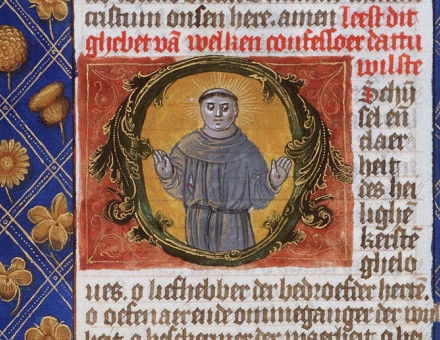 cristum onsen here. amen Leest dit
ghebet vā welken confessoer dattu
wilste
Schÿ
sel eñ
daer
heit
des hei
lighē
kerstē
ghelo
ues. o liefhebber der bedroefder hertē
o oefenaer ende ommeganger der